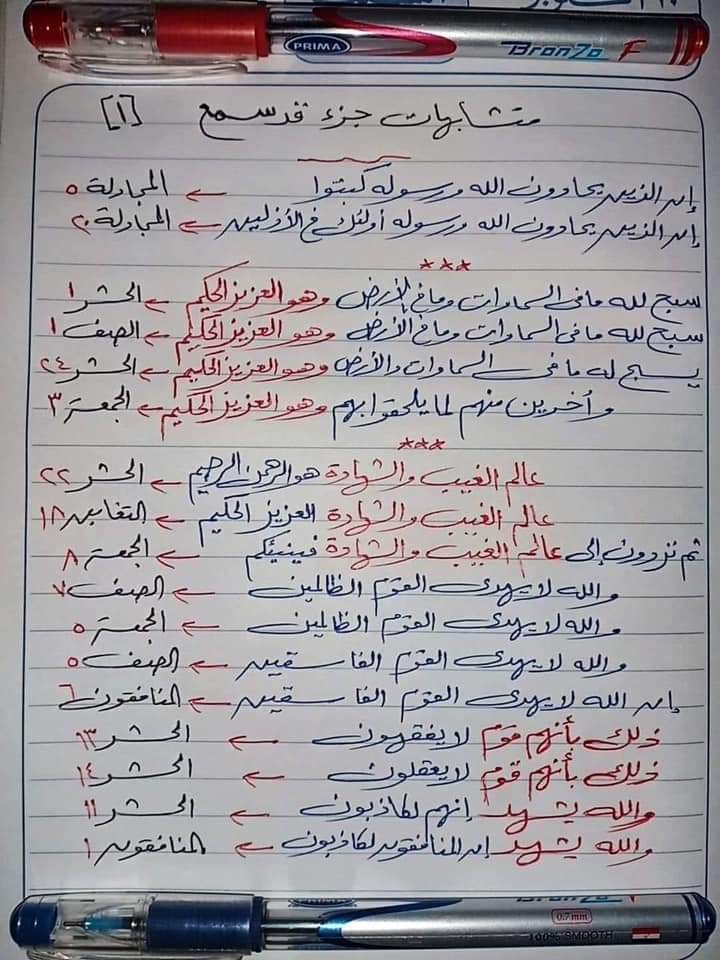 PRIMA BronZo F
متشابهات جزء قد سمع [١]
إن الذين يحادون الله ورسوله كبتوا ← المجادلة ٥
إن الذين يحادون الله ورسوله أولئك في الأذلين ← المجادلة ٢٠
***
سبح لله ما في السماوات وما في الأرض وهو العزيز الحكيم ← الحشر ١
سبح لله ما في السماوات وما في الأرض وهو العزيز الحكيم ← الصف ١
يسبح له ما في السماوات والأرض وهو العزيز الحكيم ← الحشر ٢٤
وآخرين منهم لما يلحقوا بهم وهو العزيز الحكيم ← الجمعة ٣
***
عالم الغيب والشهادة هو الرحمن الرحيم ← الحشر ٢٢
عالم الغيب والشهادة العزيز الحكيم ← التغابن ١٨
ثم تردون إلى عالم الغيب والشهادة فينبئكم ← الجمعة ٨
والله لا يهدى القوم الظالمين ← الصف ٧
والله لا يهدى القوم الظالمين ← الجمعة ٥
والله لا يهدى القوم الفاسقين ← الصف ٥
إن الله لا يهدى القوم الفاسقين ← المنافقون ٦
ذلك بأنهم قوم لا يفقهون ← الحشر ١٣
ذلك بأنهم قوم لا يعقلون ← الحشر ١٤
والله يشهد إنهم لكاذبون ← الحشر ١١
والله يشهد إن المنافقون لكاذبون ← المنافقون ١
BronZo F
0.7 mm
100% SMOOTH